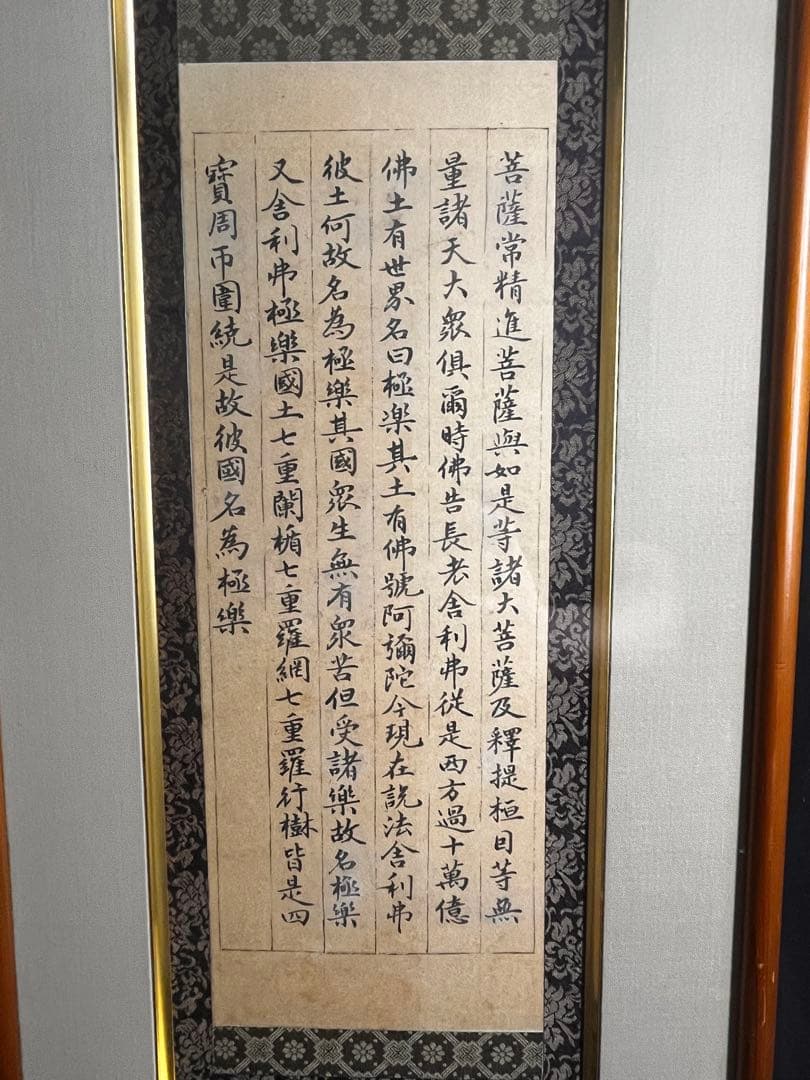 菩薩常精進菩薩與如是等諸大菩薩及釋提桓因等無
量諸天大眾俱爾時佛告長老舎利弗従是西方過十萬億
佛土有世界名曰極楽其土有佛號阿彌陀今現在說法舎利弗
彼土何故名為極樂其國眾生無有眾苦但受諸樂故名極樂
又舎利弗極樂國土七重闌楯七重羅網七重羅行樹皆是四
寶周帀圍繞是故彼國名為極樂